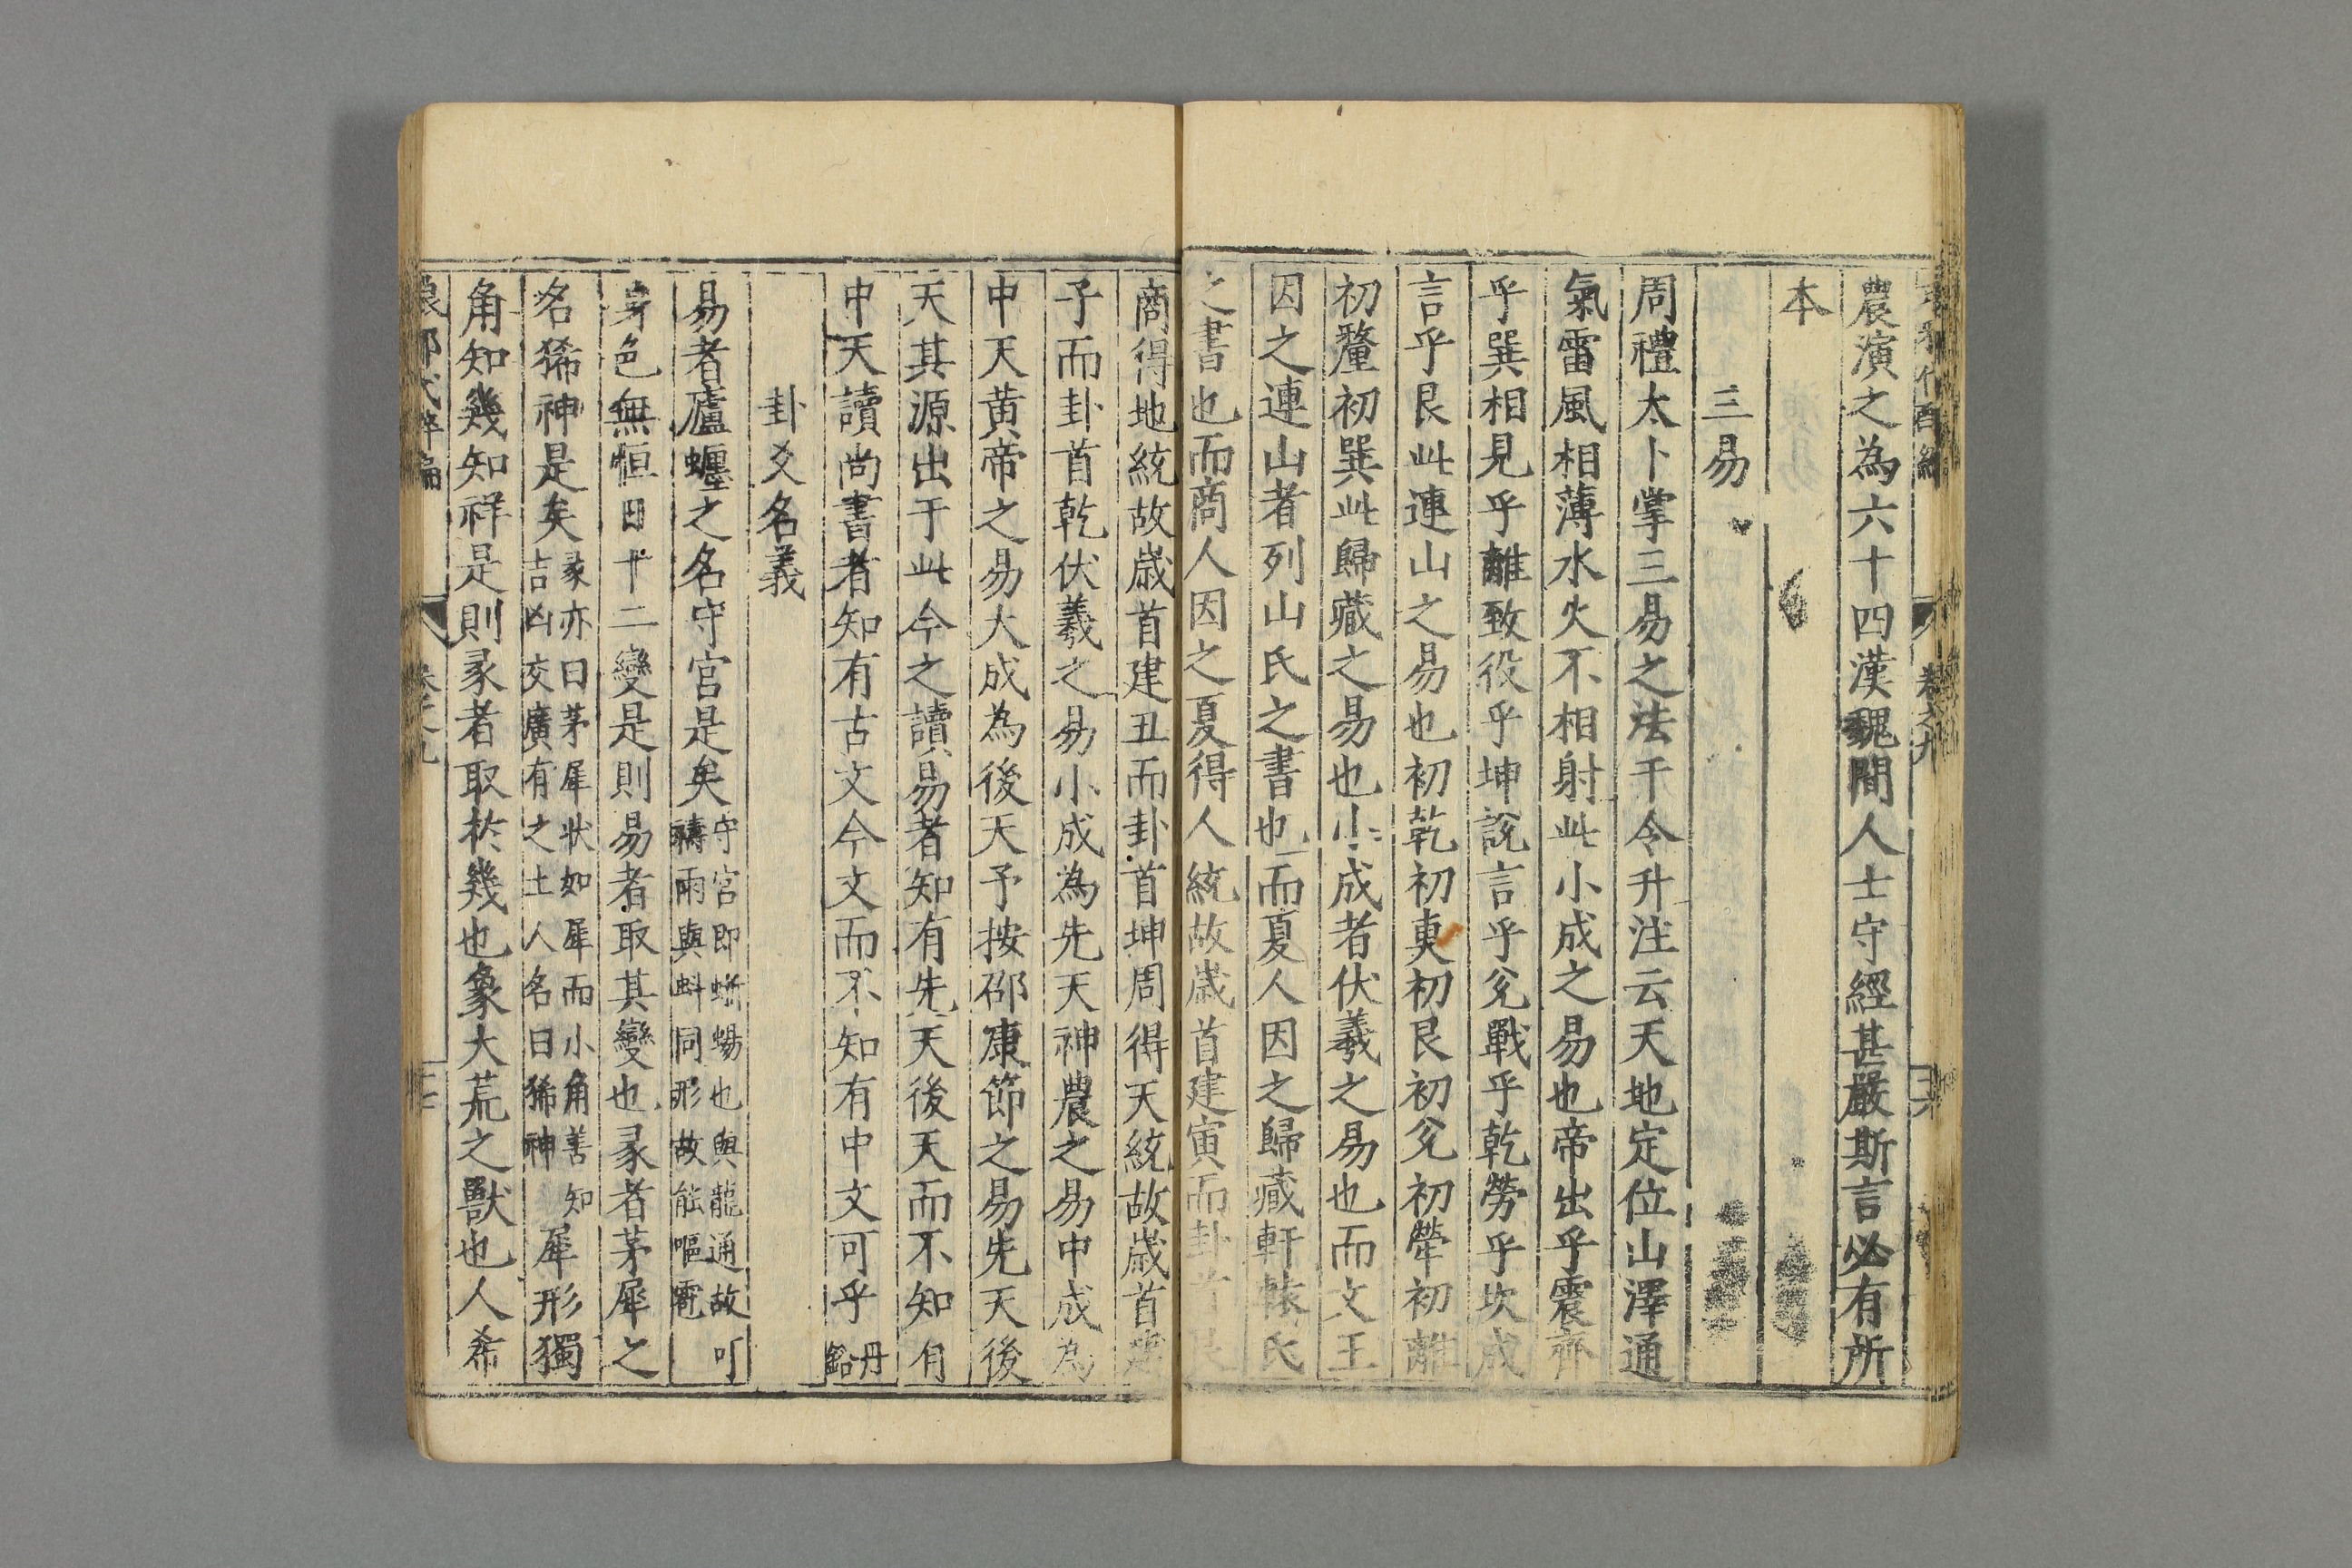 農演之為六十四漢魏間人士守經甚嚴斯言必有所
本
三易
周禮太卜掌三易之法干令升注云天地定位山澤通
氣雷風相薄水火不相射此小成之易也帝出乎震齊
乎巽相見乎離致役乎坤說言乎兌戰乎乾勞乎坎成
言乎艮此連山之易也初乾初奭初艮初兌初犖初離
初釐初巽此歸藏之易也小成者伏羲之易也而文王
因之連山者列山氏之書也而夏人因之歸藏軒轅氏
之書也而商人因之夏得人統故歲首建寅而卦首艮
商得地統故歲首建丑而卦首坤周得天統故歲首建
子而卦首乾伏羲之易小成為先天神農之易中成為
中天黃帝之易大成為後天予按邵康節之易先天後
天其源出于此今之讀易者知有先天後天而不知有
中天讀尚書者知有古文今文而不知有中文可乎丹鉛
卦爻名義
易者廬蠦之名守宮是矣守宮即蜥蜴也與龍通故可禱雨與蚪同形故能嘔雹
身色無恒日十二變是則易者取其變也彖者茅犀之
名狶神是矣彖亦曰茅犀狀如犀而小角善知吉凶交廣有之土人名曰狶神犀形獨
角知幾知祥是則彖者取於幾也象大荒之獸也人希
卷之九